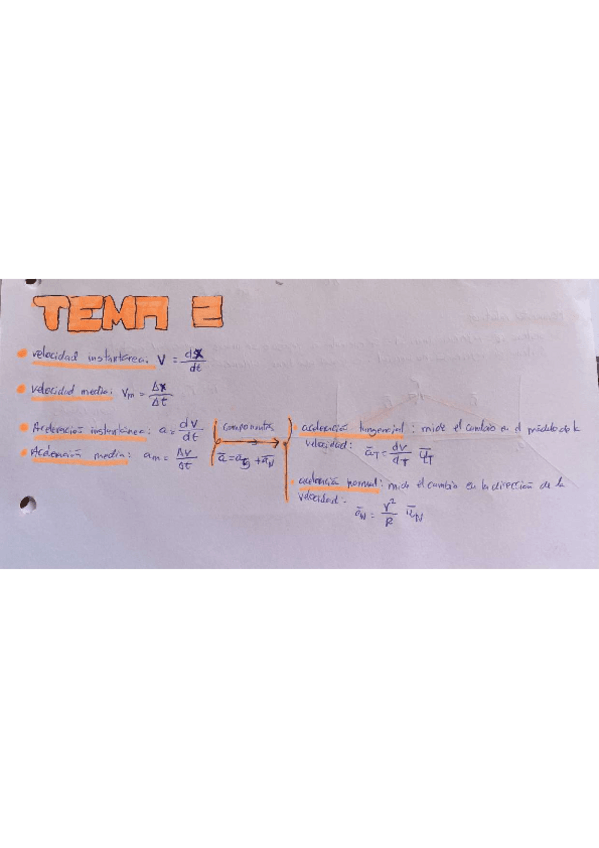 TEMA 2
velocidad instantánea. V = dx/dt
Velocidad media: Vm = Δx/Δt
Aceleración instantánea: a = dv/dt
Aceleración media: am = Δv/Δt
componentes
ā = āT + āN
aceleración tangencial: mide el cambio en el módulo de la
velocidad: āT = dv/dT ūT
aceleración normal: mide el cambio en la dirección de la
velocidad.
āN = v²/R ūN